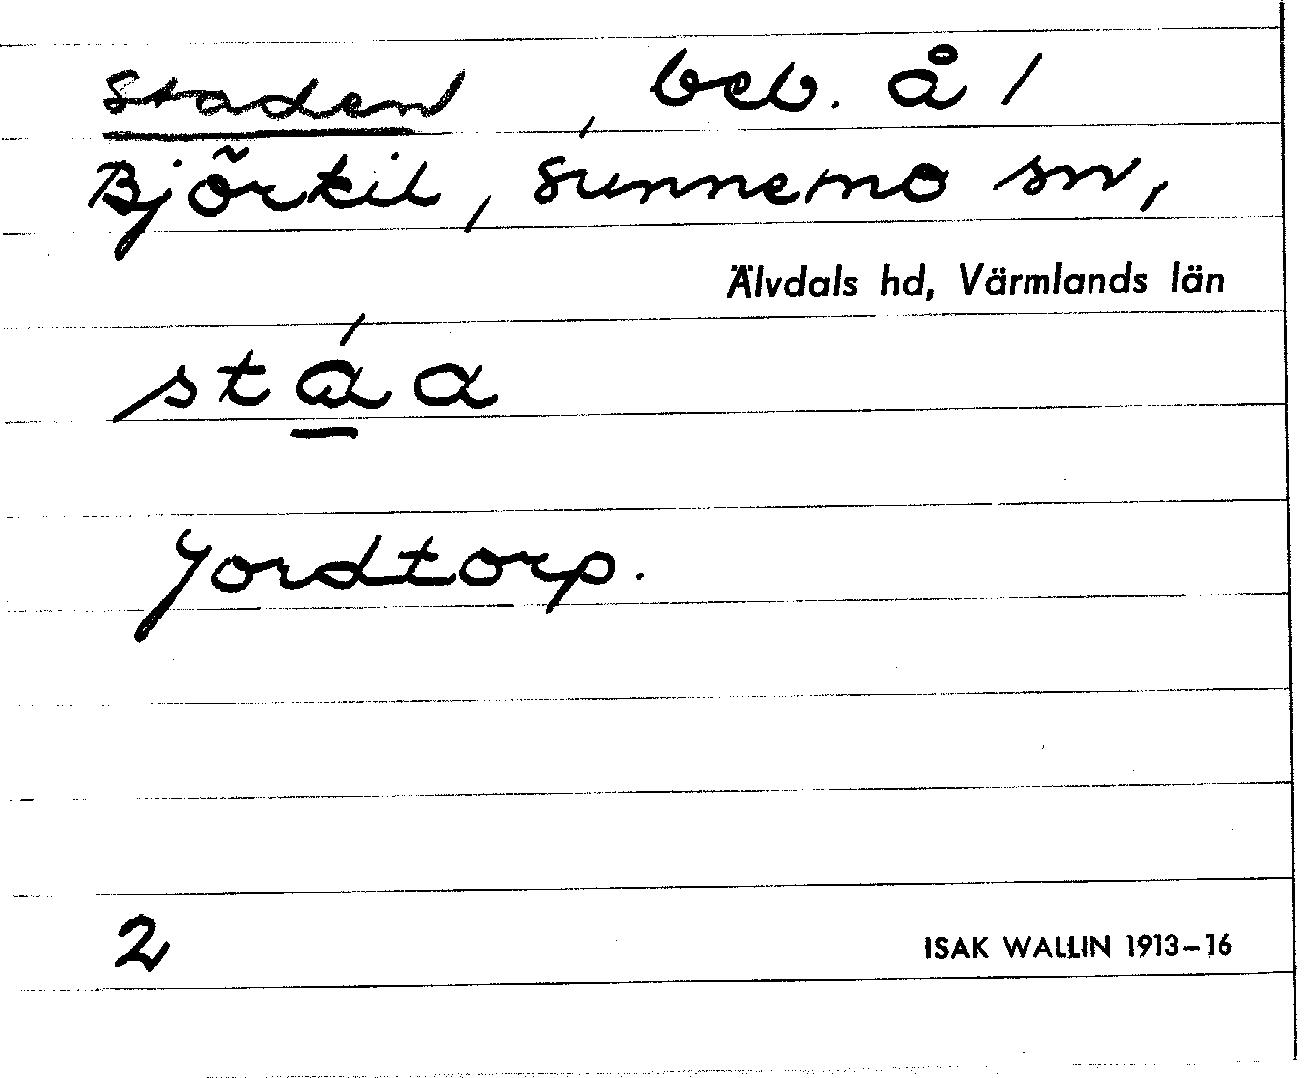 Staden, beb. å 1
Björkil, Sunnemo sn,
Älvdals hd, Värmlands län
stá̱a
Jordtorp.
2
ISAK WALLIN 1913–16